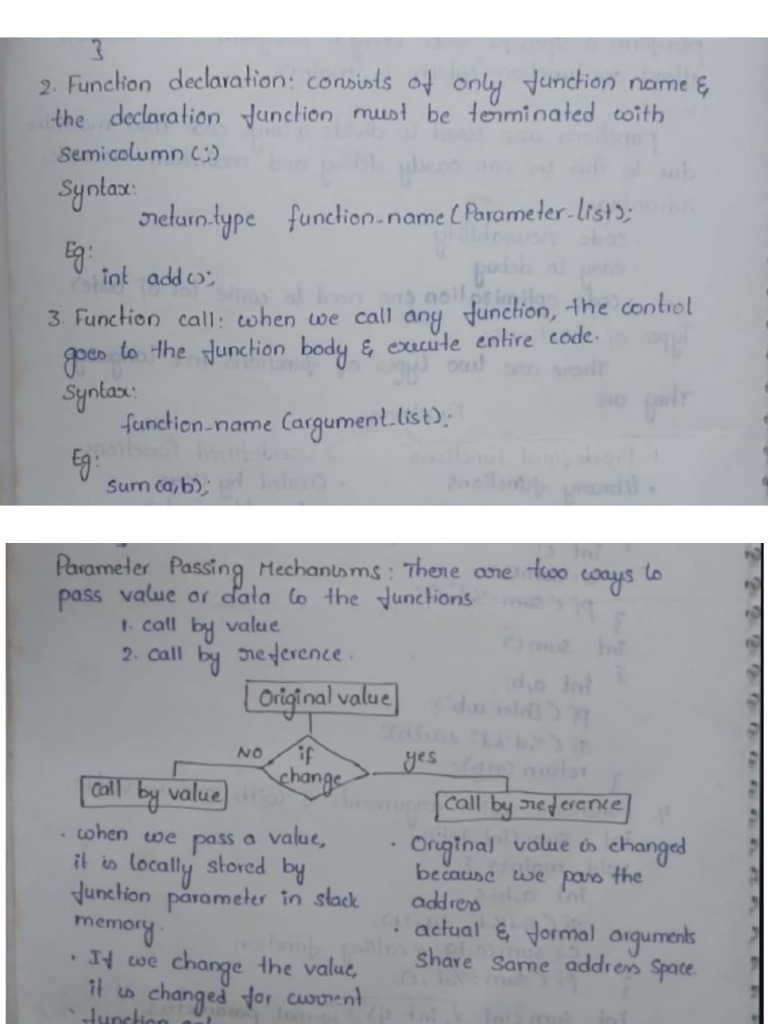 }
2. Function declaration: consists of only function name &
the declaration function must be terminated with
semicolumn (;)
Syntax:
return-type function-name (Parameter-list);
Eg:
int add ();
3. Function call: when we call any function, the control
goes to the function body & execute entire code.
Syntax:
function-name (argument-list);
Eg:
sum (a,b);
Parameter Passing Mechanisms: There are two ways to
pass value or data to the functions
1. call by value
2. call by reference.
Original value
NO if yes
change
Call by value
Call by reference
· when we pass a value,
it is locally stored by
function parameter in stack
memory.
· If we change the value,
it is changed for current
function
· Original value is changed
because we pass the
address
· actual & formal arguments
Share Same address Space.